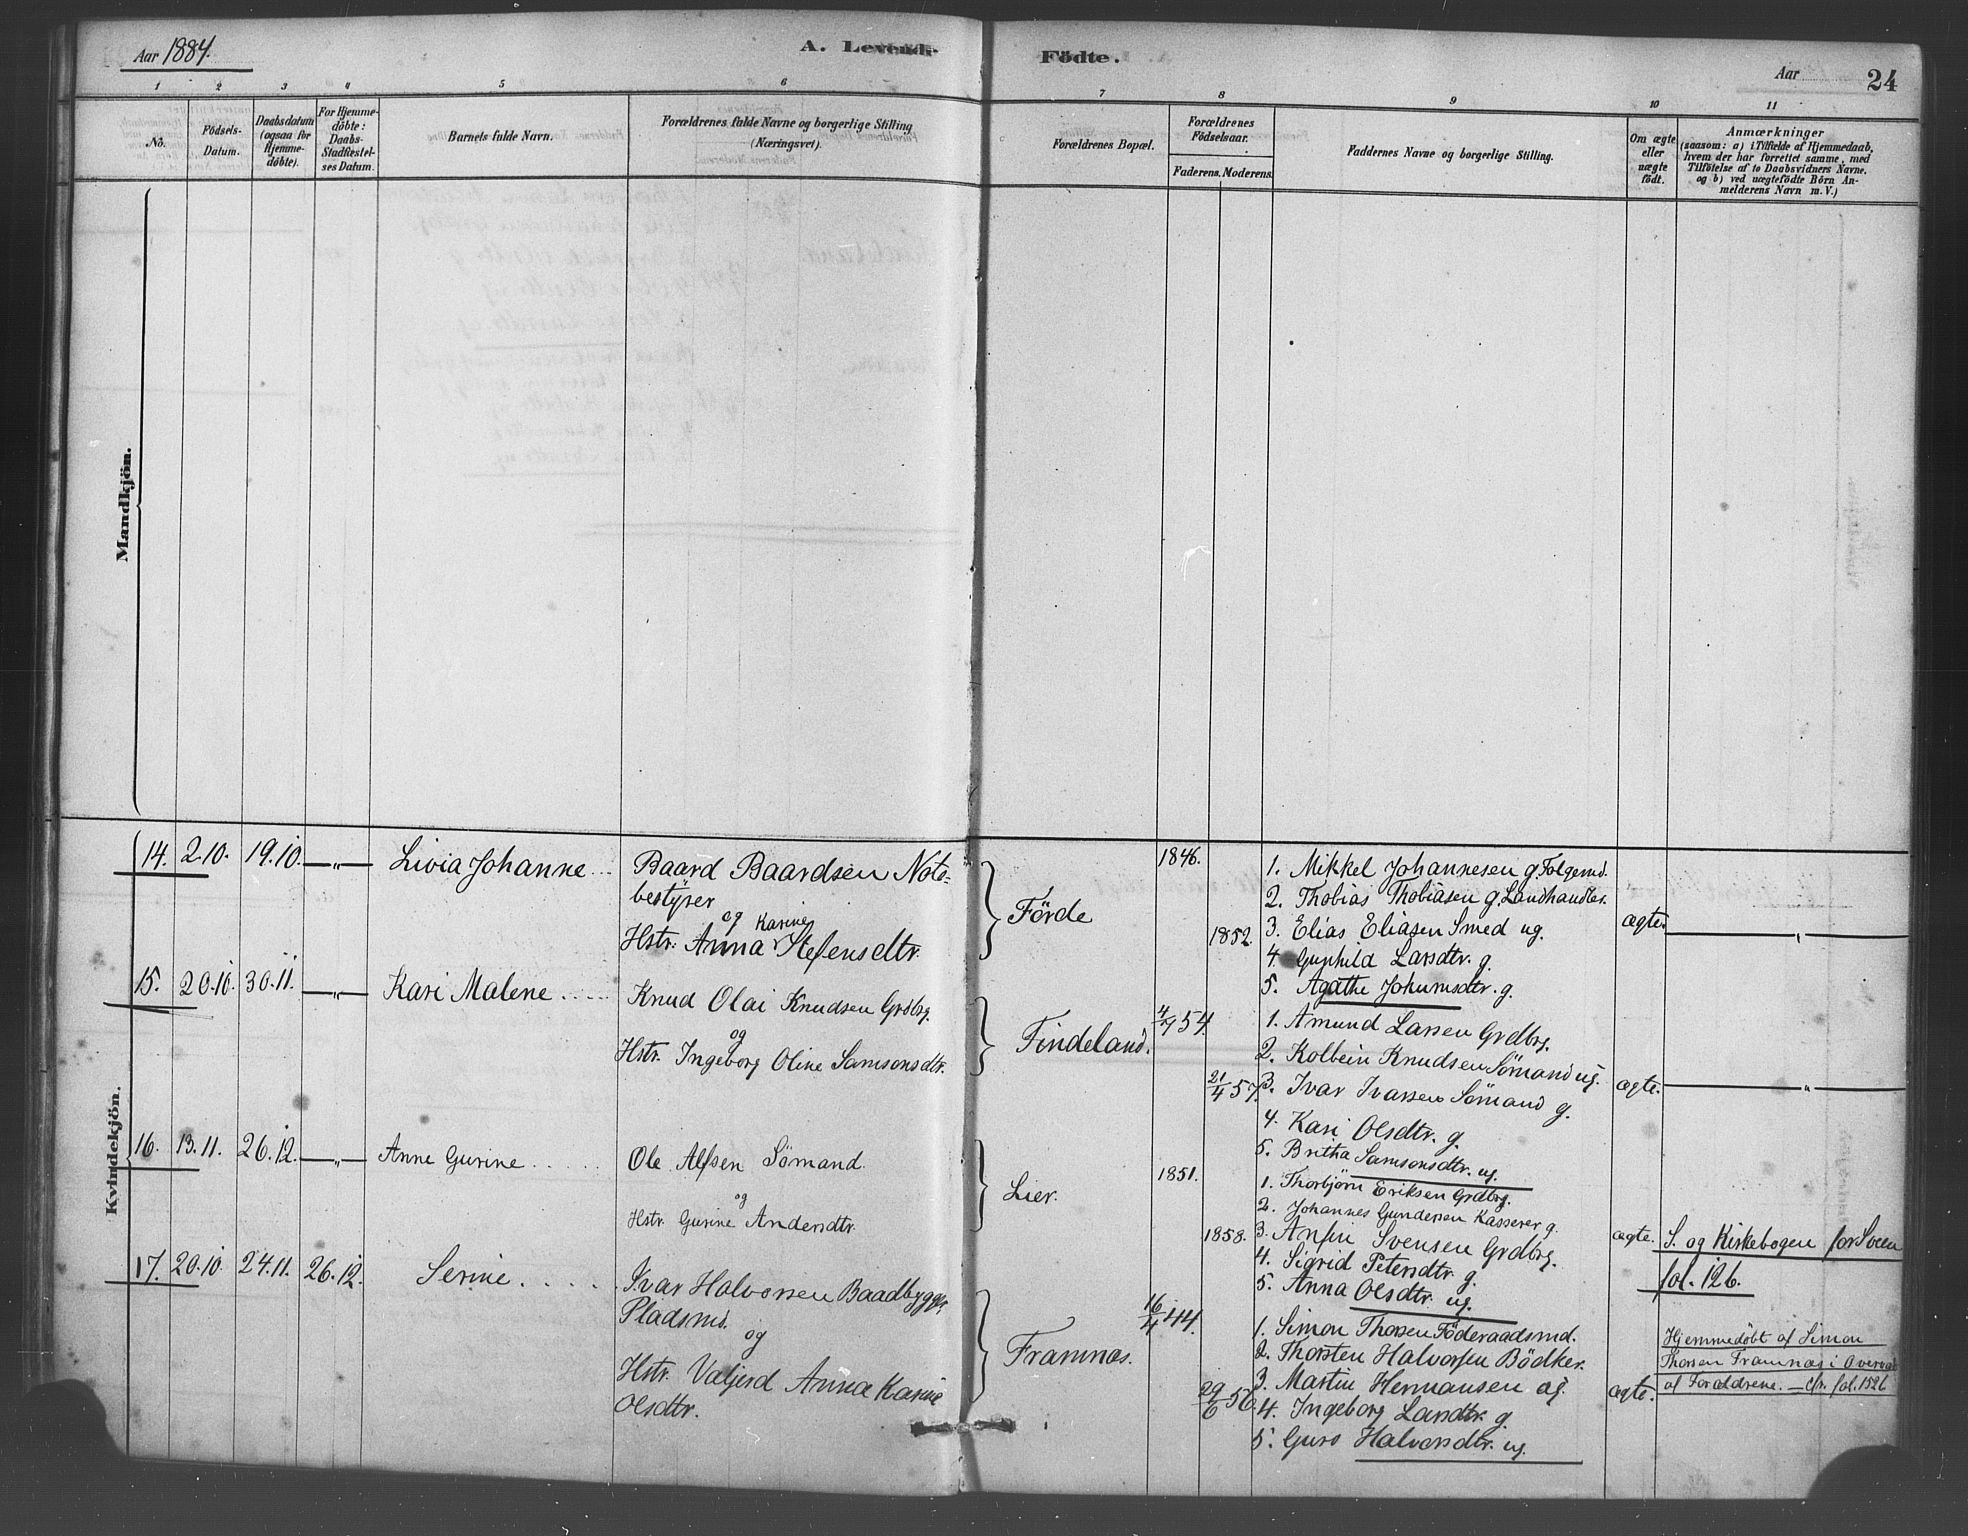 Aar 1884.
A. Levende
Födte.
Aar
24
1 2 3 4 5 6 7 8 9 10 11
No.
Födsels-
Datum.
Daabsdatum
(ogsaa for
Hjemme-
döbte).
For Hjemme-
döbte:
Daabs-
Stadfæstel-
ses Datum.
Barnets fulde Navn.
Forældrenes fulde Navne og borgerlige Stilling
(Næringsvei).
Forældrenes Bopæl.
Forældrenes
Födselsaar.
Faderens. Moderens.
Faddernes Navne og borgerlige Stilling.
Om ægte
eller
uægte
födt.
Anmærkninger
(saasom: a) i Tilfælde af Hjemmedaab,
hvem der har forrettet samme, med
Tilföielse af to Daabsvidners Navne.
og b) ved uægtefödte Börn An-
melderens Navn m. V.)
Mandkjön.
Kvindekjön.
14. 2.10. 19.10. —"— Livia Johanne
Baard Baardsen Not-
bestyrer
og Karine
Hstr. Anna Stefensdtr.
Förde
1846.
1852.
1. Mikkel Johannesen g. Folgemd.
2. Thobias Thobiasen g. Landhandler.
3. Elias Eliasen Smed ug.
4. Gunhild Larsdtr. g.
5. Agathe Johnnsdtr. g.
ægte.
—"—
15. 20.10. 30.11. —"— Kari Malene
Knud Olai Knudsen Grdbrg.
og
Hstr. Ingeborg Oline Samsonsdtr.
Findeland.
4/7 54.
21/4 57.
1. Amund Larsen Grdbrg.
2. Kolbein Knudsen Sömand ug.
3. Ivar Ivarsen Sömand g.
4. Kari Olsdtr. g.
5. Britha Samsonsdtr. ug.
ægte.
—"—
16. 13.11. 26.12. —"— Anne Gurine
Ole Alfsen Sömand
og
Hstr. Gurine Andersdtr.
Lier.
1851.
1858.
1. Thorbjörn Eriksen Grdbrg.
2. Johannes Gundersen Kasserer g.
3. Anfin Svensen Grdbrg.
4. Sigrid Petersdtr. g.
5. Anna Olsdtr. ug.
ægte.
S. og Kirkebogen for Sveen
fol. 126.
17. 20.10. 24.11. 26.12. Serine
Ivar Halvorsen Baadbygger
Pladsmd.
og
Hstr. Valjerd Anna Karine
Olsdtr.
Framnæs.
16/4 44.
29/6 56.
1. Simon Thorsen Föderaadsmd.
2. Thorsten Halvorsen Bödker.
3. Martin Hermansen ug.
4. Ingeborg Larsdtr. g.
5. Guro Halvorsdtr. ug.
ægte.
Hjemmedöbt af Simon
Thorsen Framnæs i Overvær
af Forældrene. — cfr. fol. 152b